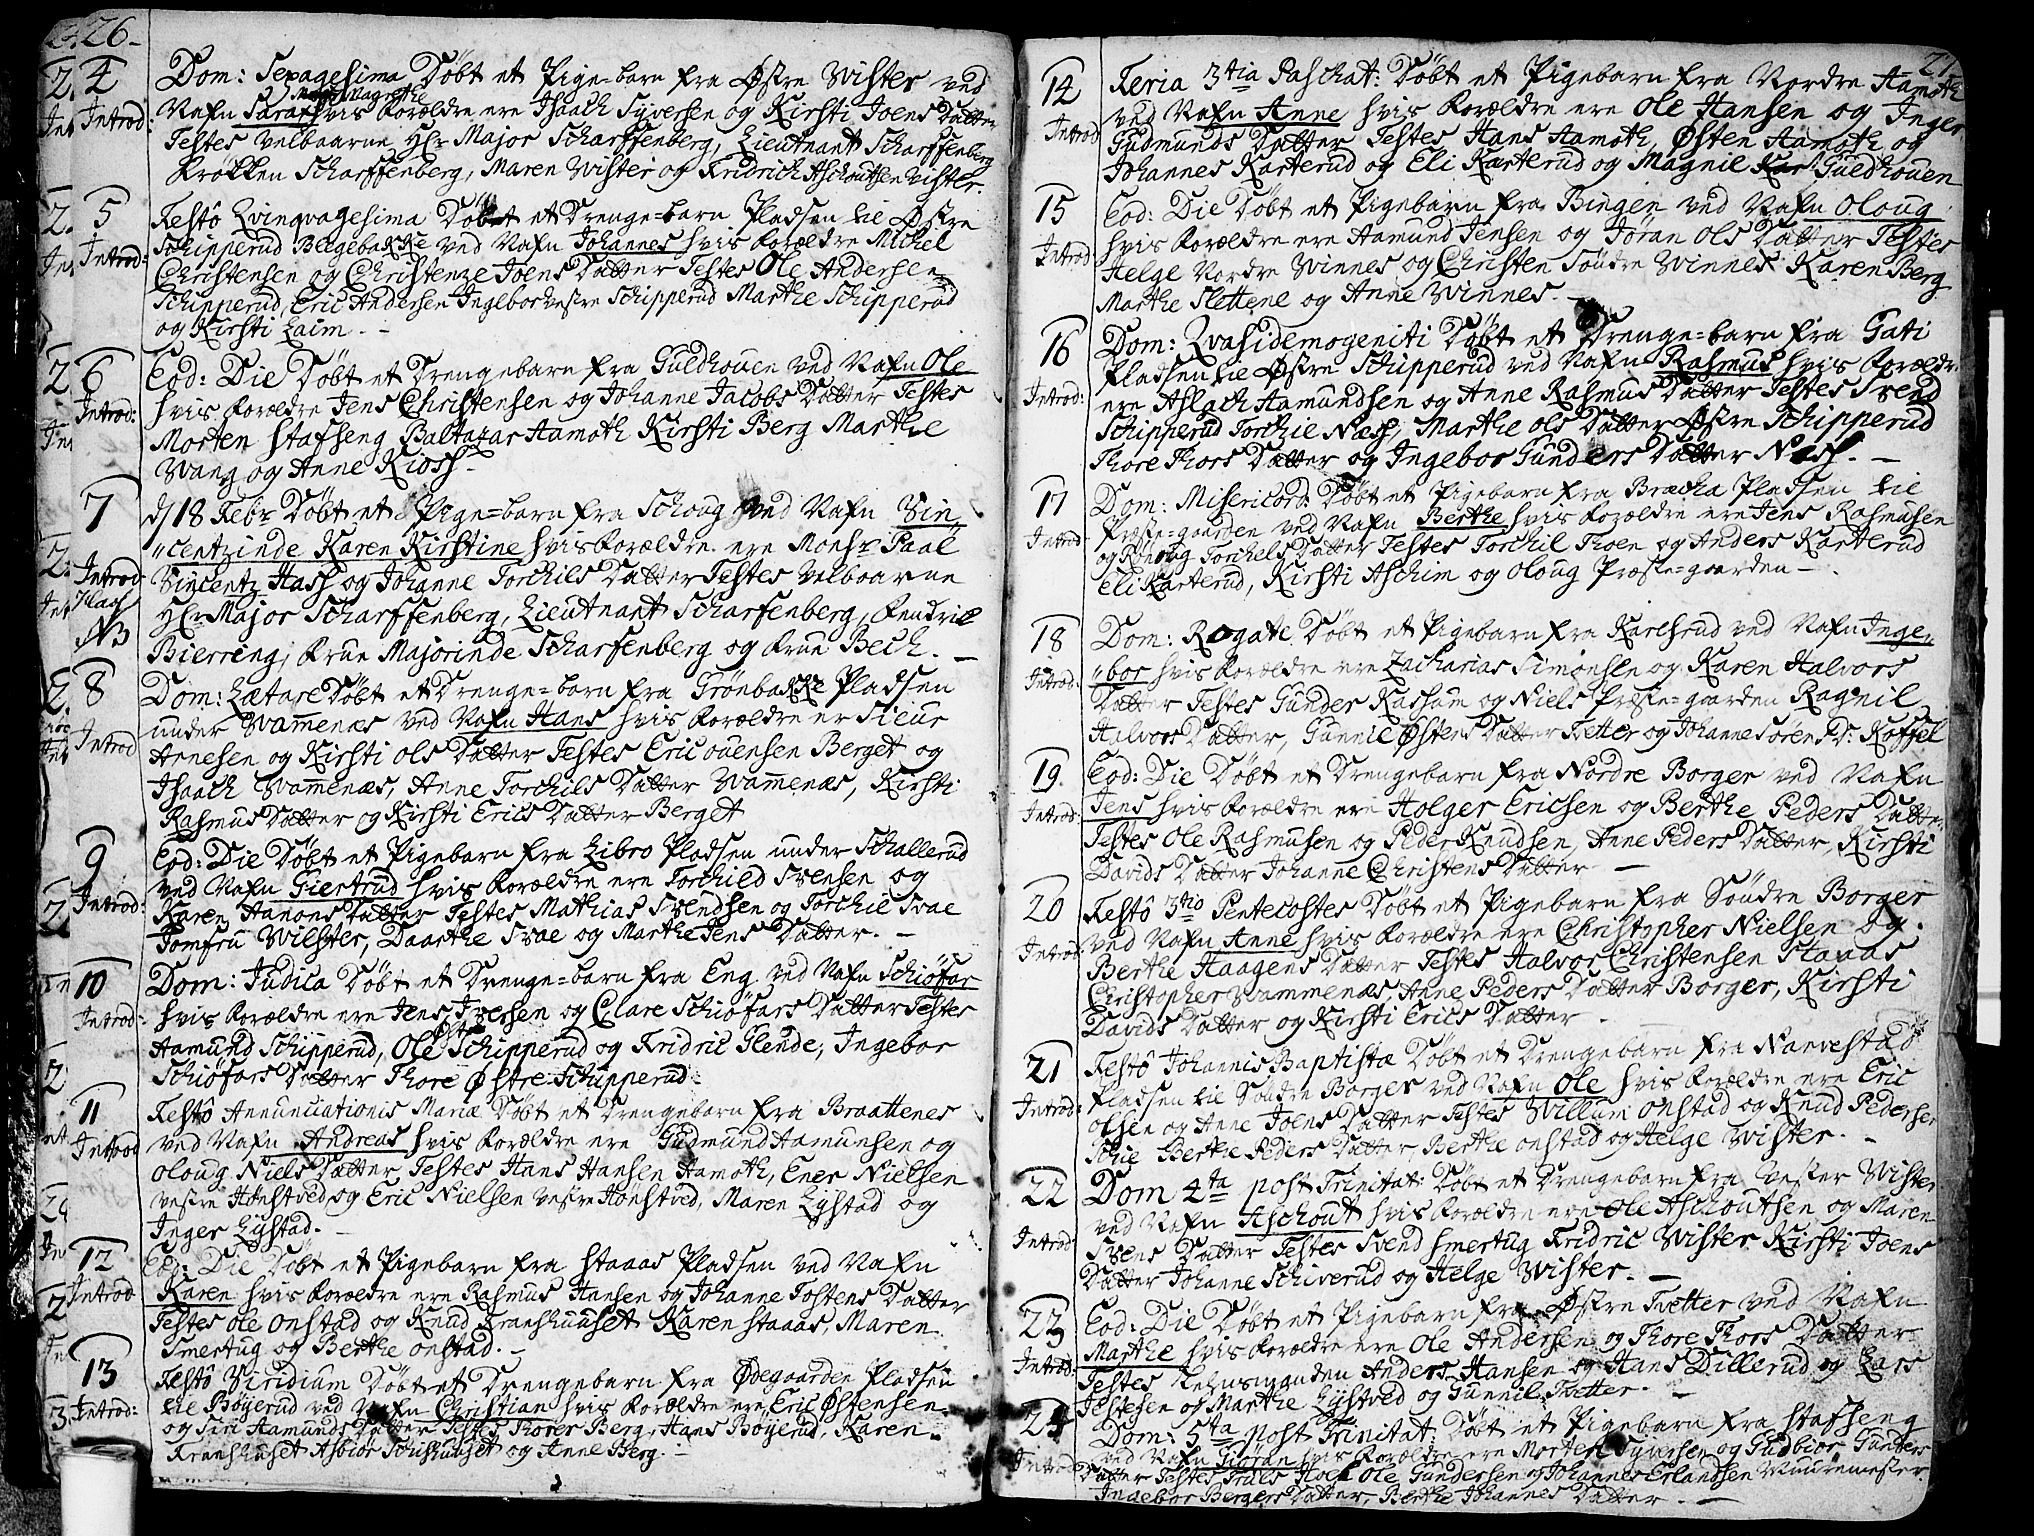 26
4 Dom: Sexagesima Døbt et Pige=barn fra Østre Wister ved
Introd: Nafn Sara Maria Magrethe hvis Forældre ere Isaach Syversen og Kirsti Joens Datter
Testes velbaarne Hr Major Scharffenberg, Lieutnant Scharffenberg
Frøkken Scharffenberg, Maren Wister og Fridrich Aschoutsen Wister.
5 Festô Qvinqvagesima Døbt et Drenge=barn Pladsen til Østre
Introd: Schipperud Bergebakke ved Nafn Johannes hvis Forældre Michel
Christensen og Christenze Joens Datter Testes Ole Andersen
Schipperud, Eric Andersen Ingebor vestre Schipperud Marthe Schipperud
og Kirsti Laim.
6 Eod: Die Døbt et Drengebarn fra Guldhouen ved Nafn Ole
Introd: hvis Forældre Jens Christensen og Johanne Jacobs Datter Testes
Morten Stafseng Baltazar Aamoth Kirsti Berg Marthe
Wang og Anne Kioss.
7 d/18 Febr Døbt et Pige=barn fra Schoug ved Nafn Vin,
Introd centzinde Karen Kirstine hvis Forældre ere Monsr Paal
Vincentz Hass og Johanne Torchils Datter Testes velbaarne
NB Hr Major Scharffenberg, Lieutnant Scharfenberg, Fendric
Bierring, Frue Majorinde Scharfenberg og Frue Bech.
8 Dom: Lætare Døbt et Drenge=barn fra Grønbakke Pladsen
Introd under Wamenæs ved Nafn Hans hvis Forældre er Sieur
Arnesen og Kirsti Ols Datter Testes Eric ouensen Berget og
Isaach Wamenæs, Anne Torchils Datter Wamenæs, Kirsti
Rasmus Datter og Kirsti Erics Datter Berget
9 Eod: Die Døbt et Pigebarn fra Libro Pladsen under Schallerud
Introd: ved Nafn Giertrud hvis Forældre ere Torchild Svensen og
Karen Hanons Datter Testes Mathias Svendsen og Torchil Svae
Jomfru Wiester, Daarthe Svae og Marthe Jens Datter.
10 Dom: Judica Døbt et Drenge=barn fra Eng ved Nafn Schiøfar
Introd: hvis Forældre ere Jens Iversen og Clare Schiøfars Datter Testes
Aamund Schipperud, Ole Østre Schipperud og Fridric Glende, Ingebor
Schiøfars Datter Thore Østre Schipperud.
11 Festô Annunciationis Mariæ Døbt et Drengebarn fra Braattenes
Introd ved Nafn Andreas hvis Forældre ere Gudmund Aamunsen og
Oloug Niels Datter Testes Hans Hansen Aamoth, Ener Nielsen
vestre Honstved, og Eric Nielsen vestre Honstved, Maren Lystad og
Inger Lystad.
12 Eod: Die Døbt et Pigebarn fra Staaas Pladsen ved Nafn
Introd Karen hvis Forældre ere Rasmus Hansen og Johanne Tostens Datter
Testes Ole Onstad og Knud Franshuuset Karen Staaas, Maren
Smertug og Berthe Onstad.
13 Festô Viridium Døbt et Drengebarn fra Ødegaarden Pladsen
Introd: til Bøyerud ved Nafn Christian hvis Forældre ere Eric Østensen
og Siri Aamunds Datter Testes Thorer Berg, Hans Bøyerud, Karen
Franshuuset Asbior Franshuuset og Anne Berg.
27
14 Feria 3tia Paschat: Døbt et Pigebarn fra Nordre Aamoth
Introd ved Nafn Anne hvis Forældre ere Ole Hansen og Inger
Gudmunds Datter Testes Hans Aamoth, Østen Aamoth og
Johannes Karterud og Eli Karterud og Magnil Guldhouen
15 Eod: Die Døbt et Pigebarn fra Bingen ved Nafn Oloug
Introd hvis Forældre ere Aamund Jensen og Jøran Ols Datter Testes
Helge Nordre Winnes og Christen Søndre Winnes Karen Berg
Marthe Slettene og Anne Winnes.
16 Dom: Qvasidemogeniti Døbt et Drenge=barn fra Gati
Introd: Pladsen til Østre Schipperud ved Nafn Rasmus hvis Forældre
ere Aslach Aamundsen og Anne Rasmus Datter Testes Svend
Schipperud Torchie Næss, Marthe Ols Datter Østre Schipperud
Thore Thors Datter og Ingebor Gunders Datter Næss.
17 Dom: Misericord: Døbt et Pigebarn fra Bræcha Pladsen til
Introd: Præste=gaarden ved Nafn Berthe hvis Forældre ere Jens Rasmusen
og Torchels Datter Testes Torchil Thoen og Anders Karterud
Eli Karterud, Kirsti Aschim og Oloug Præste=gaarden
18 Dom: Rogate Døbt et Pigebarn fra Karlsrud ved Nafn Inge,
Introd: bor hvis Forældre ere Zacharias Simonsen og Karen Halvors
Datter Testes Gunder Kassum og Niels Præste=gaarden Ragnil
Halvors Datter, Gunnil Østens Datter Tvetter og Johanne Søren D: Koffel
19. Eod: Die Døbt et Drengebarn fra Nordre Borger ved Nafn
Introd: Jens hvis Forældre ere Holger Ericsen og Berthe Peders Datter
Testes Ole Rasmusen og Peder Knudsen, Anne Peders Datter, Kirsti
Davids Datter Johanne Christens Datter
20 Festô 3tio Pentecostes Døbt et Pigebarn fra Søndre Borger
Introd: ved Nafn Anne hvis Forældre ere Christopher Nielsen og
Berthe Haagens Datter Testes Halvor Christensen Staaas
Christopher Wammenæs, Anne Peders Datter Borger, Kirsti
Davids Datter og Kirsti Erics Datter.
21 Festô Johannis Baptistæ Døbt et Drengebarn fra Narvestad
Introd: Pladsen til Søndre Borger ved Nafn Ole hvis Forældre ere Eric
Olsen og Anne Joens Datter Testes Willum Onstad og Knud Pedersen
Schie Berthe Peders Datter, Berthe Onstad og Helge Wister.
22 Dom 4ta post Trinitat: Døbt et Drengebarn fra Vester Wister
Introd ved Nafn Aschout hvis Forældre ere Ole Aschoutsen og Maren
Svens Datter Testes Svend Smertug Fridric Wister Kirsti Joens
Datter Johanne Schiverud og Helge Wister.
23 Eod: Die Døbt et Pigebarn fra Østre Tvetter ved Nafn
Introd: Marthe hvis Forældre ere Ole Andersen og Thore Thors Datter
Testes Lehnsmanden Anders Hansen og Hans Dillerud og Lars
Jestesen og Marthe Lystved og Gunnil Tvetter.
24 Dom: 5ta post Trinitat: Døbt et Pigebarn fra Stafseng
Introd ved Nafn Giøran hvis Forældre ere Morten Syversen og Gudbior Gunders
Datter Testes Truls Hoel Ole Gundersen og Johannes Erlandsen Muuremester
Ingebor Bergers Datter, Berthe Johannes Datter.